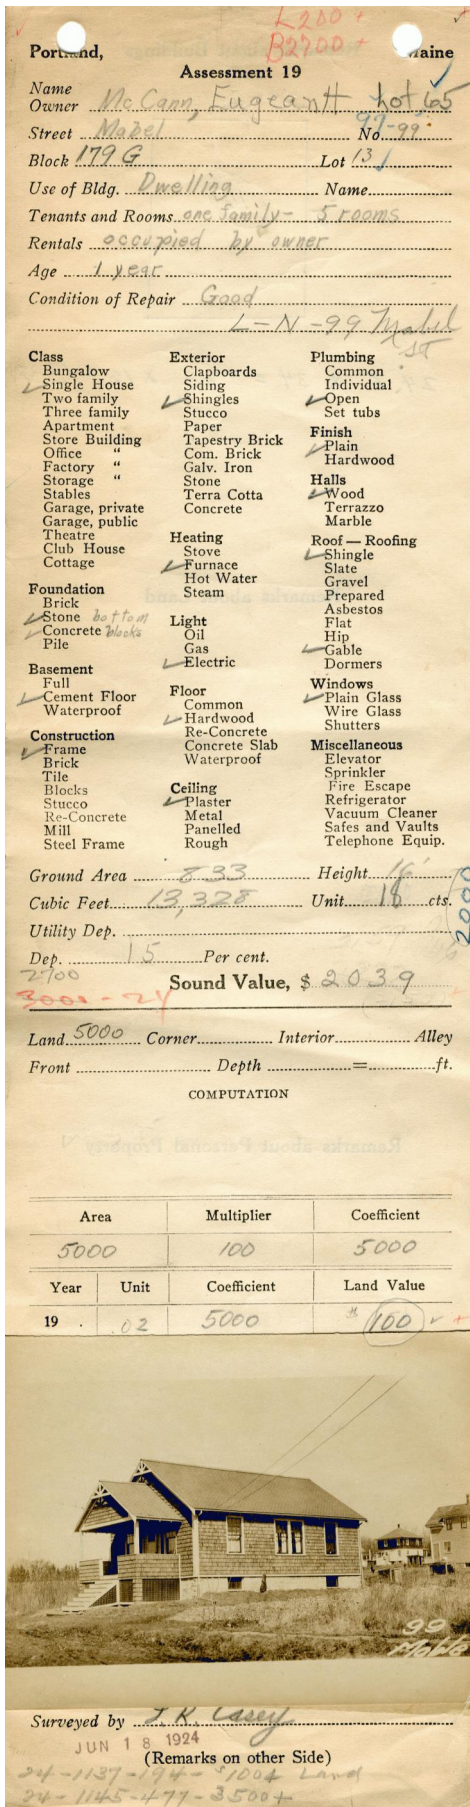 L200 +
B2700 +
Portland, Maine
Assessment 19
Name
Owner McCann, Eugean H Lot 65
97-99
Street Mabel No. 99
Block 179 G Lot 13
Use of Bldg. Dwelling Name
Tenants and Rooms one family - 5 rooms
Rentals occupied by owner
Age 1 year
Condition of Repair Good
L-N-99 Mabel ST
Class
Bungalow
Single House
Two family
Three family
Apartment
Store Building
Office "
Factory "
Storage "
Stables
Garage, private
Garage, public
Theatre
Club House
Cottage
Foundation
Brick
Stone bottom
Concrete blocks
Pile
Basement
Full
Cement Floor
Waterproof
Construction
Frame
Brick
Tile
Blocks
Stucco
Re-Concrete
Mill
Steel Frame
Exterior
Clapboards
Siding
Shingles
Stucco
Paper
Tapestry Brick
Com. Brick
Galv. Iron
Stone
Terra Cotta
Concrete
Heating
Stove
Furnace
Hot Water
Steam
Light
Oil
Gas
Electric
Floor
Common
Hardwood
Re-Concrete
Concrete Slab
Waterproof
Ceiling
Plaster
Metal
Panelled
Rough
Plumbing
Common
Individual
Open
Set tubs
Finish
Plain
Hardwood
Halls
Wood
Terrazzo
Marble
Roof — Roofing
Shingle
Slate
Gravel
Prepared
Asbestos
Flat
Hip
Gable
Dormers
Windows
Plain Glass
Wire Glass
Shutters
Miscellaneous
Elevator
Sprinkler
Fire Escape
Refrigerator
Vacuum Cleaner
Safes and Vaults
Telephone Equip.
Ground Area 833 Height 16'
Cubic Feet 13,328 Unit 18 cts.
2000
Utility Dep.
Dep. 15 Per cent.
2700
Sound Value, $ 2039
3000 - 24
Land 5000 Corner Interior Alley
Front Depth = ft.
COMPUTATION
Area Multiplier Coefficient
5000 100 5000
Year Unit Coefficient Land Value
19 .02 5000 $ 100
99
Mable
Surveyed by J. R. Casey
JUN 18 1924
(Remarks on other Side)
24-1137-194-$100+ Land
24-1145-477-3500+